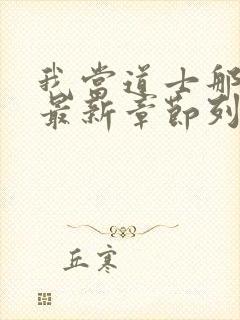 我當道士那
最新章節列
丘寒